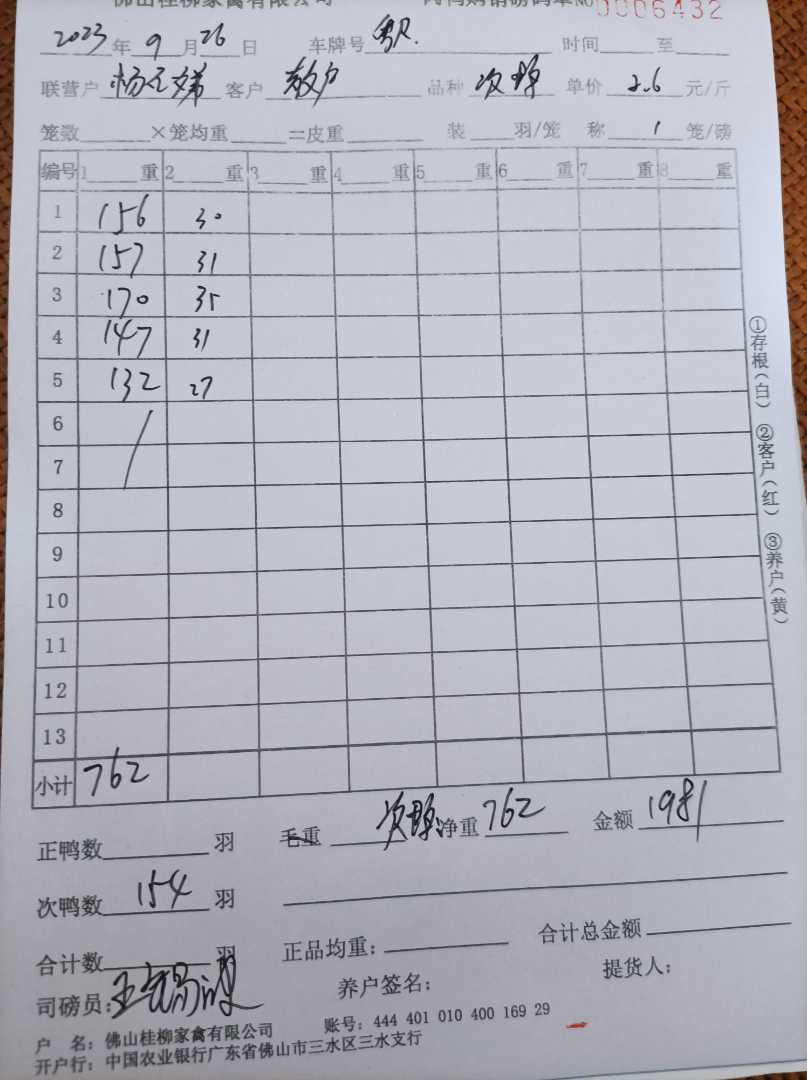 佛山桂柳家禽有限公司 肉鸭购销磅码单No 0006432
2023年 9月 26日 车牌号 时间 至
联营户 客户 散户 品种 次鸭 单价 2.6 元/斤
笼数 ×笼均重 =皮重 装 羽/笼 称 1 笼/磅
编号 1 重 2 重 3 重 4 重 5 重 6 重 7 重 8 重
1 156 30
2 157 31
3 170 35
4 147 31
5 132 27
6
7
8
9
10
11
12
13
小计 762
正鸭数 羽 毛重 净重 762 金额 1981
次鸭数 154 羽
合计数 羽 正品均重： 合计总金额
司磅员： 养户签名： 提货人：
户 名：佛山桂柳家禽有限公司 账号：444 401 010 400 169 29
开户行：中国农业银行广东省佛山市三水区三水支行
①存根（白） ②客户（红） ③养户（黄）